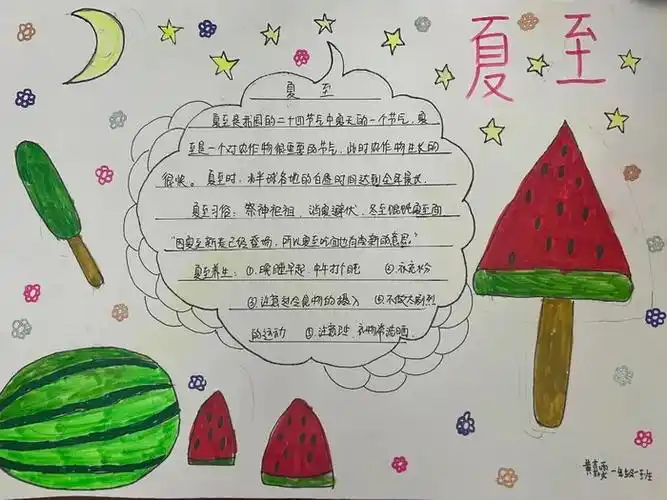 夏至
夏 至
夏至是我国的二十四节气中夏天的一个节气,夏
至是一个对农作物很重要的节气,此时农作物生长的
很快。夏至时,北半球各地的白昼时间达到全年最长.
夏至习俗:祭神祀祖、消夏避伏、冬至馄饨夏至面
"因夏至新麦已经登场,所以夏至吃面也有尝新的意思。"
夏至养生:①.晚睡早起,中午打个盹 ②.补充水分
③注意起食物的摄入 ④不做太剧烈
的运动 ⑤.注意卫生、衣物常洗晒.
黄嘉雯 一年级一班